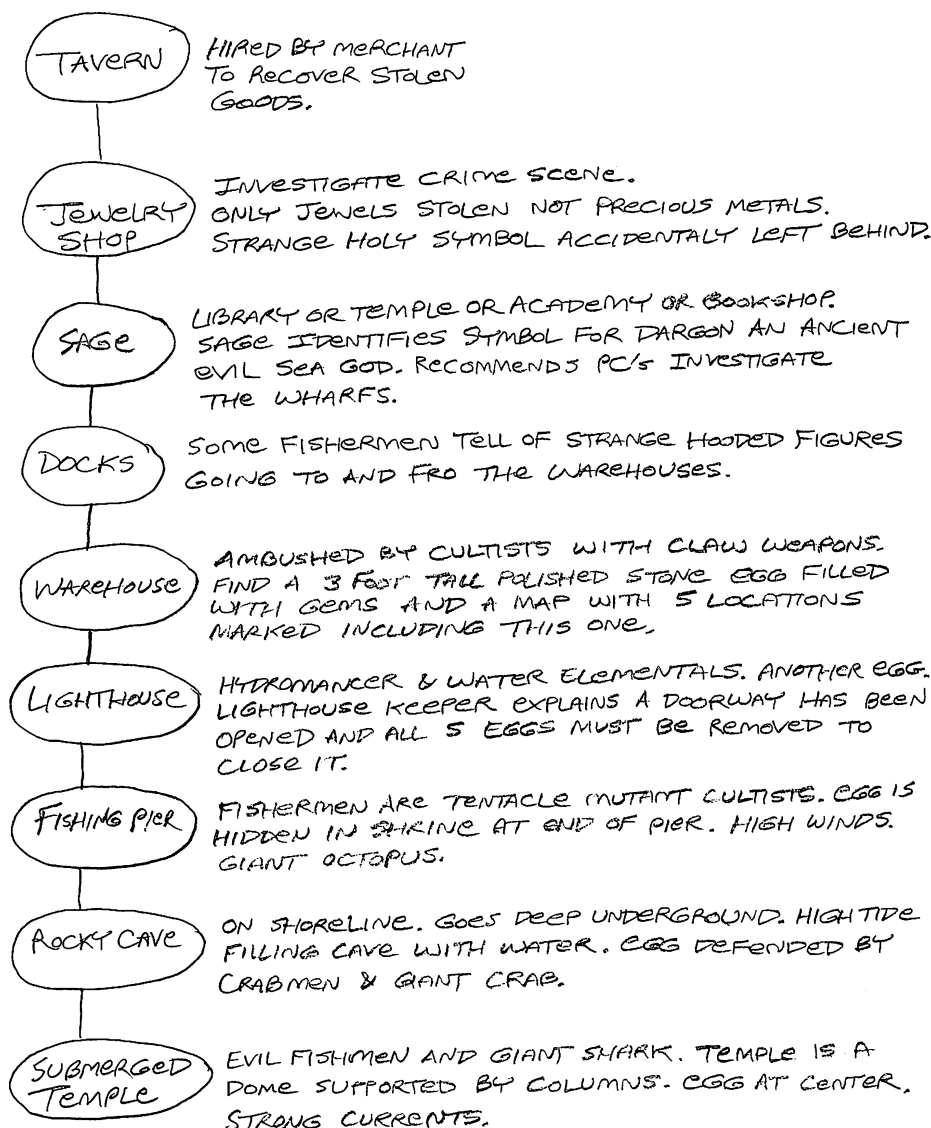 TAVERN
HIRED BY MERCHANT
TO RECOVER STOLEN
GOODS.
JEWELRY
SHOP
INVESTIGATE CRIME SCENE.
ONLY JEWELS STOLEN NOT PRECIOUS METALS.
STRANGE HOLY SYMBOL ACCIDENTALY LEFT BEHIND.
SAGE
LIBRARY OR TEMPLE OR ACADEMY OR BOOKSHOP.
SAGE IDENTIFIES SYMBOL FOR DARGON AN ANCIENT
EVIL SEA GOD. RECOMMENDS PC's INVESTIGATE
THE WHARFS.
DOCKS
SOME FISHERMEN TELL OF STRANGE HOODED FIGURES
GOING TO AND FRO THE WAREHOUSES.
WAREHOUSE
AMBUSHED BY CULTISTS WITH CLAW WEAPONS.
FIND A 3 FOOT TALL POLISHED STONE EGG FILLED
WITH GEMS AND A MAP WITH 5 LOCATIONS
MARKED INCLUDING THIS ONE.
LIGHTHOUSE
HYDROMANCER & WATER ELEMENTALS. ANOTHER EGG.
LIGHTHOUSE KEEPER EXPLAINS A DOORWAY HAS BEEN
OPENED AND ALL 5 EGGS MUST BE REMOVED TO
CLOSE IT.
FISHING PIER
FISHERMEN ARE TENTACLE MUTANT CULTISTS. EGG IS
HIDDEN IN SHRINE AT END OF PIER. HIGH WINDS.
GIANT OCTOPUS.
ROCKY CAVE
ON SHORELINE. GOES DEEP UNDERGROUND. HIGH TIDE
FILLING CAVE WITH WATER. EGG DEFENDED BY
CRABMEN & GIANT CRAB.
SUBMERGED
TEMPLE
EVIL FISHMEN AND GIANT SHARK. TEMPLE IS A
DOME SUPPORTED BY COLUMNS. EGG AT CENTER.
STRONG CURRENTS.